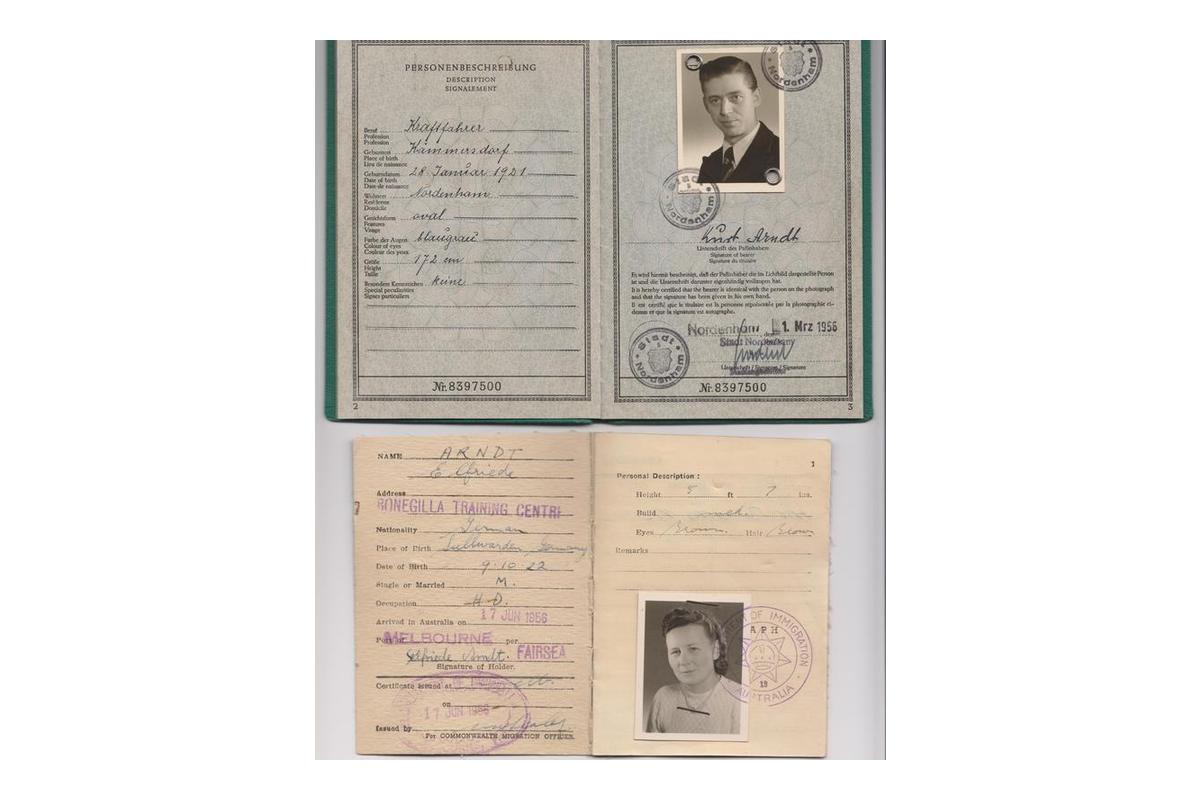 PERSONENBESCHREIBUNG
DESCRIPTION
SIGNALEMENT
Beruf Kraftfahrer
Profession
Profession
Geburtsort Hämmersdorf
Place of birth
Lieu de naissance
Geburtsdatum 28. Januar 1921
Date of birth
Date de naissance
Wohnort Nordenham
Residence
Domicile
Gesichtsform oval
Features
Visage
Farbe der Augen blaugrau
Colour of eyes
Couleur des yeux
Größe 172 cm
Height
Taille
Besondere Kennzeichen keine
Special peculiarities
Signes particuliers
Nr. 8397500
2
Nordenham
Stadt
Nordenham
Kurt Arndt
Unterschrift des Paßinhabers
Signature of bearer
Signature du titulaire
Es wird hiermit bescheinigt, daß der Paßinhaber die im Lichtbild dargestellte Person
ist und die Unterschrift darunter eigenhändig vollzogen hat.
It is hereby certified that the bearer is identical with the person on the photograph
and that the signature has been given in his own hand.
Il est certifié que le titulaire est la personne représentée par la photographie ci-
dessus et que la signature est autographe.
Nordenham, den 1. Mrz 1956
Stadt Nordenham
Stadt
Nordenham
Unterschrift / Signature / Signature
Nr. 8397500
3
NAME ARNDT
Elfriede
Address
BONEGILLA TRAINING CENTRE
Nationality German
Place of Birth Sillwarden, Germany
Date of Birth 9.10.22
Single or Married M.
Occupation H.D.
Arrived in Australia on 17 JUN 1956
Port of MELBOURNE per FAIRSEA
Elfriede Arndt.
Signature of Holder.
Certificate issued at
on 17 JUN 1956
Issued by
For COMMONWEALTH MIGRATION OFFICER.
1
Personal Description :
Height 5 ft 7 ins.
Build
Eyes Brown. Hair Brown
Remarks
OF IMMIGRATION
A.P.H
19
AUSTRALIA